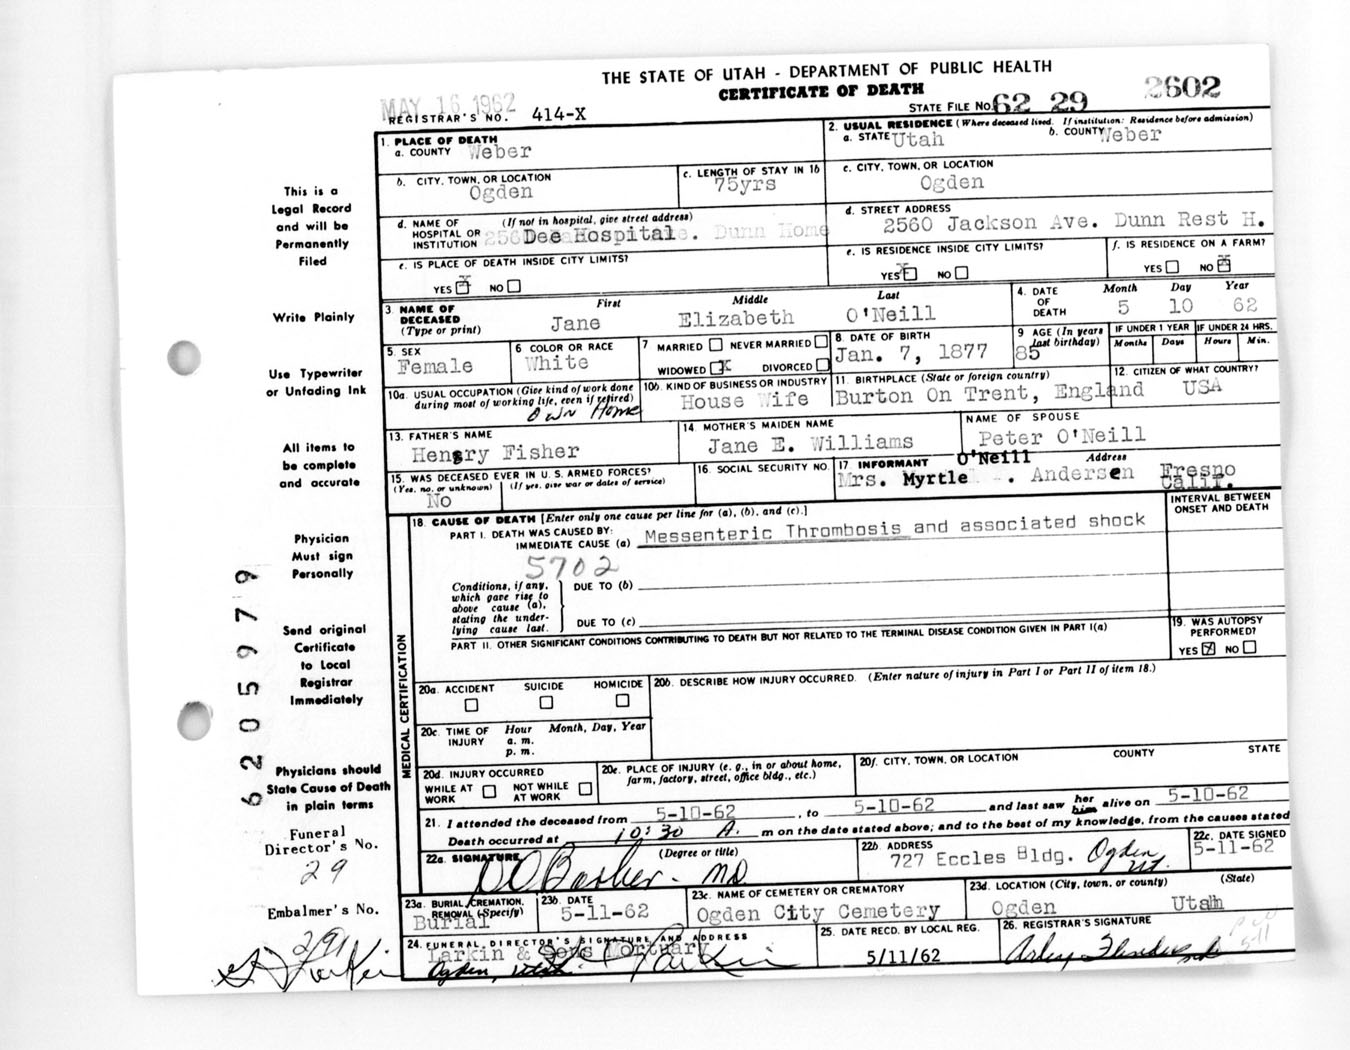 THE STATE OF UTAH - DEPARTMENT OF PUBLIC HEALTH
CERTIFICATE OF DEATH
2602
MAY 16 1962
REGISTRAR'S NO. 414-X
STATE FILE NO. 62 29
1. PLACE OF DEATH
a. COUNTY Weber
2. USUAL RESIDENCE (Where deceased lived. If institution: Residence before admission)
a. STATE Utah b. COUNTY Weber
b. CITY, TOWN, OR LOCATION
Ogden
c. LENGTH OF STAY IN 1b
75yrs
c. CITY, TOWN, OR LOCATION
Ogden
d. NAME OF (If not in hospital, give street address)
HOSPITAL OR
INSTITUTION Dee Hospital . Dunn Home
d. STREET ADDRESS
2560 Jackson Ave. Dunn Rest H.
e. IS PLACE OF DEATH INSIDE CITY LIMITS?
YES X NO
e. IS RESIDENCE INSIDE CITY LIMITS?
YES X NO
f. IS RESIDENCE ON A FARM?
YES NO X
3. NAME OF DECEASED
(Type or print)
First Middle Last
Jane Elizabeth O'Neill
4. DATE OF DEATH
Month Day Year
5 10 62
5. SEX
Female
6 COLOR OR RACE
White
7 MARRIED NEVER MARRIED
WIDOWED X DIVORCED
8. DATE OF BIRTH
Jan. 7, 1877
9 AGE (In years last birthday)
85
IF UNDER 1 YEAR IF UNDER 24 HRS.
Months Days Hours Min.
10a. USUAL OCCUPATION (Give kind of work done
during most of working life, even if retired)
Own Home
10b. KIND OF BUSINESS OR INDUSTRY
House Wife
11. BIRTHPLACE (State or foreign country)
Burton On Trent, England
12. CITIZEN OF WHAT COUNTRY?
USA
13. FATHER'S NAME
Henery Fisher
14. MOTHER'S MAIDEN NAME
Jane E. Williams
NAME OF SPOUSE
Peter O'Neill
15. WAS DECEASED EVER IN U. S. ARMED FORCES?
(Yes, no, or unknown) (If yes, give war or dates of service)
No
16. SOCIAL SECURITY NO.
17 INFORMANT Address
O'Neill
Mrs. Myrtle . Andersen Fresno
Calif.
MEDICAL CERTIFICATION
18. CAUSE OF DEATH [Enter only one cause per line for (a), (b), and (c).]
INTERVAL BETWEEN
ONSET AND DEATH
PART I. DEATH WAS CAUSED BY:
IMMEDIATE CAUSE (a) Messenteric Thrombosis and associated shock
5702
Conditions, if any,
which gave rise to
above cause (a),
stating the under-
lying cause last.
DUE TO (b)
DUE TO (c)
PART II. OTHER SIGNIFICANT CONDITIONS CONTRIBUTING TO DEATH BUT NOT RELATED TO THE TERMINAL DISEASE CONDITION GIVEN IN PART I(a)
19. WAS AUTOPSY
PERFORMED?
YES X NO
20a. ACCIDENT SUICIDE HOMICIDE
20b. DESCRIBE HOW INJURY OCCURRED. (Enter nature of injury in Part I or Part II of item 18.)
20c. TIME OF INJURY
Hour Month, Day, Year
a. m.
p. m.
20d. INJURY OCCURRED
WHILE AT WORK NOT WHILE AT WORK
20e. PLACE OF INJURY (e. g., in or about home,
farm, factory, street, office bldg., etc.)
20f. CITY, TOWN, OR LOCATION COUNTY STATE
21. I attended the deceased from 5-10-62 , to 5-10-62 and last saw her him alive on 5-10-62
Death occurred at 10:30 A. m on the date stated above; and to the best of my knowledge, from the causes stated
22a. SIGNATURE (Degree or title)
D O Barker - MD
22b. ADDRESS
727 Eccles Bldg. Ogden Ut.
22c. DATE SIGNED
5-11-62
23a. BURIAL, CREMATION,
REMOVAL (Specify)
Burial
23b. DATE
5-11-62
23c. NAME OF CEMETERY OR CREMATORY
Ogden City Cemetery
23d. LOCATION (City, town, or county) (State)
Ogden Utah
24. FUNERAL DIRECTOR'S SIGNATURE AND ADDRESS
Larkin & Sons Mortuary
Ogden, Utah
25. DATE RECD. BY LOCAL REG.
5/11/62
26. REGISTRAR'S SIGNATURE
This is a
Legal Record
and will be
Permanently
Filed
Write Plainly
Use Typewriter
or Unfading Ink
All items to
be complete
and accurate
Physician
Must sign
Personally
Send original
Certificate
to Local
Registrar
Immediately
Physicians should
State Cause of Death
in plain terms
Funeral
Director's No.
29
Embalmer's No.
291
Larkin
6205979